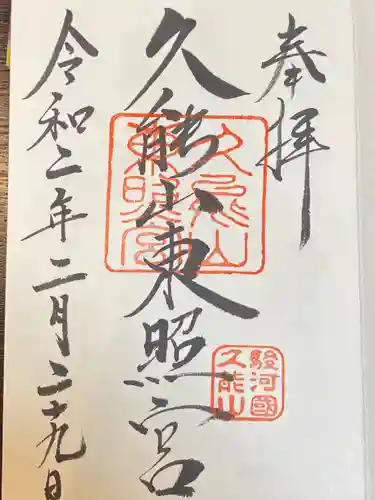 奉拝
久能山東照宮
久能山東照宮
駿河國久能山
令和二年二月二十九日